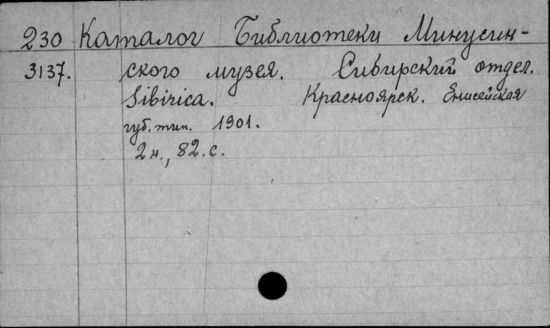 230 Каталог Библиотеки Минусин-
3137. ского музея. Сибирский отдел.
Sibirica. Красноярск. Енисейская
губ. тип. 1901.
2н., 82.с.